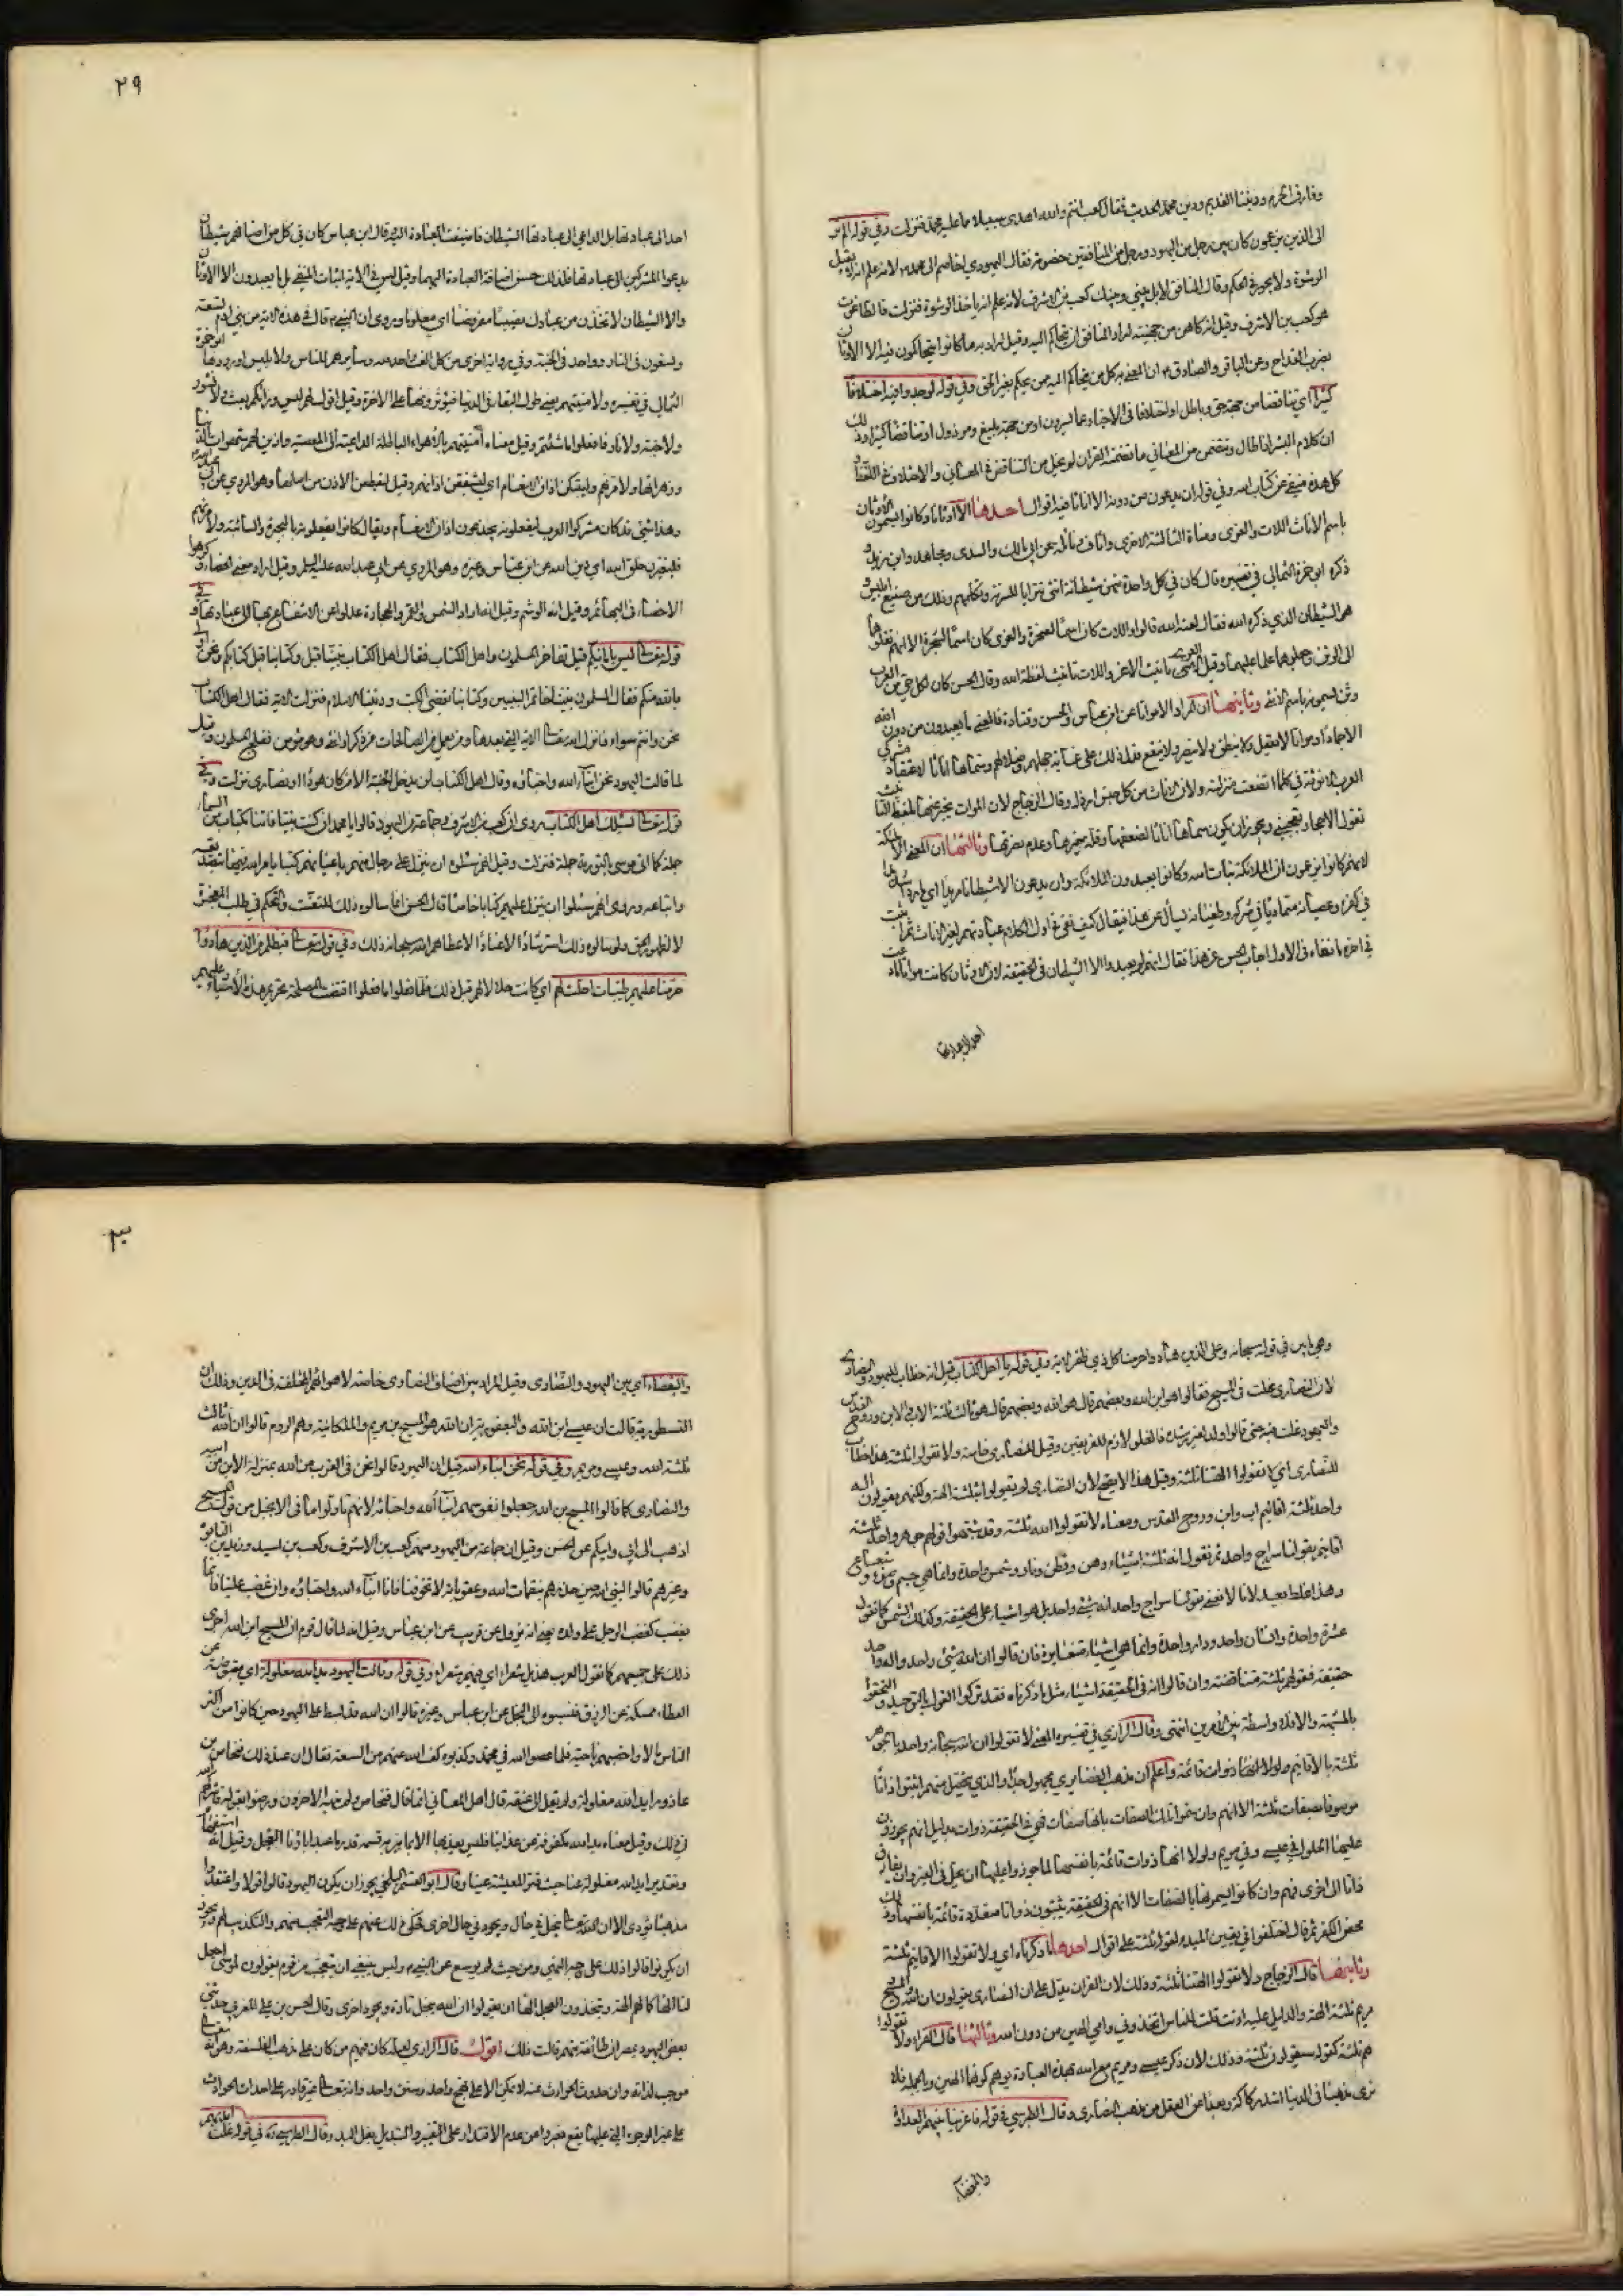 وفارق الحرم وديننا القديم ودين محمد الحديث فقال كعب انتم والله اهدى سبيلا مما عليه محمد فنزلت وفي قوله الم تر
الى الذين يزعمون كان بين رجل من اليهود ورجل من المنافقين خصومة فقال اليهودي اخاصم الى محمد لانه علم انه لا يقبل
الرشوة ولا يجور في الحكم وقال المنافق لا بل بيني وبينك كعب بن الاشرف لانه علم انه ياخذ الرشوة فنزلت فالطاغوت
هو كعب بن الاشرف وقيل انه كاهن من جهينة اراد المنافق ان يتحاكم اليه وقيل اراد به ما كانوا يتحاكمون فيه الى الاوثان
بضرب القداح وعن الباقر والصادق ع ان المعني به كل من يتحاكم اليه ممن يحكم بغير الحق وفي قوله لوجدوا فيه اختلافا
كثيرا اي تناقضا من جهة حق وباطل او اختلافا في الاخبار عما يسرون او من جهة بليغ ومرذول او تناقضا كثيرا وذلك
ان كلام البشر اذا طال وتضمن من المعاني ما تضمنه القران لم يخل من التناقض في المعاني والاختلاف في اللفظ و
كل هذه منفي عن كتاب الله وفي قوله ان يدعون من دونه الا اناثا فيه اقوال احدها الا اوثانا وكانوا يسمون الاوثان
باسم الاناث اللات والعزى ومناة الثالثة الاخرى واساف ونائلة عن ابي مالك والسدي ومجاهد وابن زيد و
ذكر ابو حمزة الثمالي في تفسيره قال كان في كل واحدة منهن شيطانة انثى تترايا للسدنة وتكلمهم وذلك من صنيع ابليس و
هو الشيطان الذي ذكره الله فقال لعنه الله قالوا واللات كان اسما لصخرة والعزى كان اسما لشجرة الا انهم نقلوها
الى الوثن وجعلوهما علما عليهما وقيل العزى تانيث الاعز واللات تانيث لفظة الله وقال الحسن كان لكل حي من العرب
وثن يسمونه باسم الانثى وثانيها ان المراد الا مواتا عن ابن عباس والحسن وقتادة فالمعنى ما يعبدون من دون الله
الا جمادا ومواتا لا يعقل ولا ينطق ولا يضر ولا ينفع فدل ذلك على غاية جهلهم وضلالهم وسماها اناثا لاعتقاد مشركي
العرب الانوثة في كلما اتضعت منزلته ولان الاناث من كل جنس ارذله وقال الزجاج لان الموات يخبر عنها بلفظ التانيث
تقول الاحجار تعجبني ويجوز ان يكون سماها اناثا لضعفها وقلة خيرها وعدم نصرتها وثالثها ان المعنى الا ملائكة
لانهم كانوا يزعمون ان الملائكة بنات الله وكانوا يعبدون الملائكة وان يدعون الا شيطانا مريدا اي ماردا شديدا
في كفره وعصيانه متماديا في شركه وطغيانه يسأل عن هذا فيقال كيف نفى في اول الكلام عبادتهم لغير الاناث ثم اثبت
في اخره ما نفاه في الاول اجاب الحسن عن هذا فقال انهم لم يعبدوا الا الشيطان في الحقيقة لان الاوثان كانت مواتا ما دعت
احدا الى عبادتها
٢٩
احدا الى عبادتها بل الداعي الى عبادتها الشيطان فاضيفت العبادة اليه وقال ابن عباس كان في كل من اصنامهم شيطان
يدعو المشركين الى عبادتها فلذلك حسن اضافة العبادة اليهما وقيل ليس في الاية اثبات المنفي بل ما يعبدون الا الاوثان
والا الشيطان لاتخذن من عبادك نصيبا مفروضا اي معلوما وروي ان النبي ص قال في هذه الاية من بني ادم تسعة
وتسعون في النار وواحد في الجنة وفي رواية اخرى من كل الف واحد لله وسايرهم للناس ولابليس اوردهما ابو حمزة
الثمالي في تفسيره ولامنينهم يعني طول البقاء في الدنيا فيؤثرونها على الاخرة وقيل اقول لهم ليس وراءكم بعث ولا نشور
ولا جنة ولا نار فافعلوا ما شئتم وقيل معناه امنينهم بالاهواء الباطلة الداعية الى المعصية وازين لهم شهوات الدنيا
وزهراتها ولامرنهم فليبتكن اذان الانعام اي ليشققن اذانهم وقيل ليقطعن الاذن من اصلها وهو المروي عن ابي عبد الله ع
وهذا شيء قد كان مشركوا العرب يفعلونه يجدعون اذان الانعام ويقال كانوا يفعلونه بالبحيرة والسائبة ولامرنهم
فليغيرن خلق الله اي دين الله عن ابن عباس وغيره وهو المروي عن ابي عبد الله عليه السلم وقيل اراد معنى الخصاء وكرهوا
الاخصاء في البهائم وقيل انه الوشم وقيل انه اراد الشمس والقمر والحجارة عدلوا عن الانتفاع بها الى عبادتها وفي
قوله تعالى ليس بامانيكم قيل تفاخر المسلمون واهل الكتاب فقال اهل الكتاب نبينا قبل نبيكم وكتابنا قبل كتابكم ونحن اولى
بالله منكم فقال المسلمون نبينا خاتم النبيين وكتابنا يقضي على الكتب وديننا الاسلام فنزلت الاية فقال اهل الكتاب
نحن وانتم سواء فانزل الله تعالى الاية التي بعدها ومن يعمل من الصالحات من ذكر او انثى وهو مؤمن ففلح المسلمون وقيل
لما قالت اليهود نحن ابناء الله واحباؤه وقال اهل الكتاب لن يدخل الجنة الا من كان هودا او نصارى نزلت وفي
قوله تعالى يسئلك اهل الكتاب روي ان كعب بن الاشرف وجماعة من اليهود قالوا يا محمد ان كنت نبيا فاتنا بكتاب من السماء
جملة كما اتى موسى بالتورية جملة فنزلت وقيل انهم سئلوه ان ينزل على رجال منهم باعيانهم كتبا يامرهم الله فيها بتصديقه
واتباعه وروي انهم سئلوا ان ينزل عليهم كتابا خاصا لهم قال الحسن انما سالوه ذلك للتعنت والتحكم في طلب المعجزة
لا لظهور الحق ولو سالوه ذلك استرشادا لا عنادا لاعطاهم الله سبحانه ذلك وفي قوله تعالى فبظلم من الذين هادوا
حرمنا عليهم طيبات احلت لهم اي كانت حلالا لهم قبل ذلك فلما فعلوا ما فعلوا اقتضت المصلحة تحريم هذه الاشياء عليهم
وهي ما بين في قوله سبحانه وعلى الذين هادوا حرمنا كل ذي ظفر الاية وفي قوله يا اهل الكتاب قيل انه خطاب لليهود والنصارى
لان النصارى غلت في المسيح فقالوا هو ابن الله وبعضهم قال هو الله وبعضهم قال هو ثالث ثلثة الاب والابن وروح القدس
واليهود غلت فيه حتى قالوا ولد لغير رشدة فالغلو لازم للفريقين وقيل للنصارى خاصة ولا تقولوا ثلثة هذا خطاب
للنصارى اي لا تقولوا الهتنا ثلثة وقيل هذا لا يصح لان النصارى لم يقولوا بثلثة الهة ولكنهم يقولون اله
واحد ثلثة اقانيم اب وابن وروح القدس ومعناه لا تقولوا الله ثلثة وقد شبهوا قولهم جوهر واحد ثلثة
اقانيم بقولنا سراج واحد ثم نقول انه ثلثة اشياء دهن وقطن ونار وشمس واحدة وانما هي جسم وضوء وشعاع
وهذا غلط بعيد لانا لا نعني بقولنا سراج واحد انه شيء واحد بل هو اشياء على الحقيقة وكذلك الشمس كما نقول
عشرة واحدة وانسان واحد ودار واحدة وانما هي اشياء متغايرة فان قالوا ان الله شيء واحد واله واحد
حقيقة فقولهم ثلثة متناقضة وان قالوا انه في الحقيقة اشياء مثل ما ذكرناه فقد تركوا القول بالتوحيد والتحقوا
بالمشبهة والا فلا واسطة بين الامرين انتهى وقال الرازي في تفسيره المعنى لا تقولوا ان الله سبحانه واحد بالجوهر
ثلثة بالاقانيم واعلم ان مذهب النصارى مجهول جدا والذي يتحصل منهم اثبتوا ذاتا
موصوفا بصفات ثلثة الا انهم وان سموا تلك الصفات بانها صفات فهي في الحقيقة ذوات بدليل انهم يجوزون
عليها الحلول في عيسى وفي مريم ولولا انها ذوات قائمة بانفسها لما جوزوا عليها ان يحل في الغير وان يفارق
ذاتا الى اخرى فهم وان كانوا يسمونها بالصفات الا انهم في الحقيقة يثبتون ذواتا متعددة قائمة بانفسها وذلك
محض الكفر ثم قال اختلفوا في تعيين المبتدء لقوله ثلثة على اقوال احدها ما ذكرناه اي ولا تقولوا الاقانيم ثلثة
وثانيها قال الزجاج ولا تقولوا الهتنا ثلثة وذلك لان القران يدل على ان النصارى يقولون ان الله والمسيح
مريم ثلثة الهة والدليل عليه اءنت قلت للناس اتخذوني وامي الهين من دون الله وثالثها قال الفراء ولا تقولوا
هم ثلثة كقوله سيقولون ثلثة وذلك لان ذكر عيسى ومريم مع الله بهذه العبادة يوهم كونهما الهين وبالجملة فلا
نرى مذهبا في الدنيا اشد ركاكة وبعدا عن العقل من مذهب النصارى وقال الطبرسي في قوله فاغرينا بينهم العداوة
والبغضاء
٣٠
والبغضاء اي بين اليهود والنصارى وقيل المراد بين اصناف النصارى خاصة لاهوائهم المختلفة في الدين وذلك ان
النسطورية قالت ان عيسى ابن الله واليعقوبية ان الله هو المسيح بن مريم والملكانية وهم الروم قالوا ان الله ثالث
ثلثة الله وعيسى ومريم وفي قوله نحن ابناء الله قيل ان اليهود قالوا نحن في القرب من الله بمنزلة الابن من ابيه
والنصارى كما قالوا المسيح بن الله جعلوا نفوسهم ابناء الله واحباءه لانهم تاولوا ما في الانجيل من قول المسيح
اذهب الى ابي وابيكم عن الحسن وقيل ان جماعة من اليهود منهم كعب بن الاشرف وكعب بن اسيد وزيد بن التابوه
وغيرهم قالوا لنبي الله حين حذرهم بنقمات الله وعقوباته لا تخوفنا فانا ابناء الله واحباؤه وان غضب علينا فانما
يغضب كغضب الرجل على ولده يعني انه يزول عن قريب عن ابن عباس وقيل انه لما قال قوم ان المسيح ابن الله اجرى
ذلك على جميعهم كما تقول العرب هذيل شعراء اي فيهم شعراء وفي قوله وقالت اليهود يد الله مغلولة اي مقبوضة عن
العطاء ممسكة عن الرزق فنسبوه الى البخل عن ابن عباس وغيره قالوا ان الله قد بسط على اليهود حتى كانوا من اكثر
الناس مالا واخصبهم ناحية فلما عصوا الله في محمد وكذبوه كف الله عنهم من السعة فقال عند ذلك فنحاص بن
عازورا يد الله مغلولة ولم يقل الى عنقه قال اهل المعاني انما قال فنحاص ولم ينهه الاخرون ورضوا بقوله فاشركهم الله
في ذلك وقيل معناه يد الله مكفوفة عن عذابنا فليس يعذبنا الا بما يبر به قسمه قدر ما عبد اباؤنا العجل وقيل انه استفهام
وتقديره ايد الله مغلولة عنا حيث قتر المعيشة علينا وقال ابو القسم البلخي يجوز ان يكون اليهود قالوا قولا واعتقدوا
مذهبا يؤدي الى ان الله تعالى يبخل في حال ويجود في حال اخرى فحكي ذلك عنهم على وجه التعجب منهم والتكذيب لهم ويجوز
ان يكونوا قالوا ذلك على وجه الهزؤ من حيث لم يوسع على النبي ص وليس ينبغي ان يتعجب من قوم يقولون لموسى اجعل
لنا الها كما لهم الهة ويتخذون العجل الها ان يقولوا ان الله يبخل تارة ويجود اخرى وقال الحسن بن علي المغربي حدثني
بعض اليهود بمصر ان طائفة منهم قالت ذلك اقول قال الرازي لعله كان فيهم من كان على مذهب الفلسفة وهو انه تعالى
موجب لذاته وان حدوث الحوادث عنه لا يمكن الا على نهج واحد وسنن واحد وانه تعالى غير قادر على احداث الحوادث
على غير الوجوه التي عليها يقع فعبروا عن عدم الاقتدار على التغيير والتبديل بغل اليد وقال الطبرسي ره في قوله تعالى